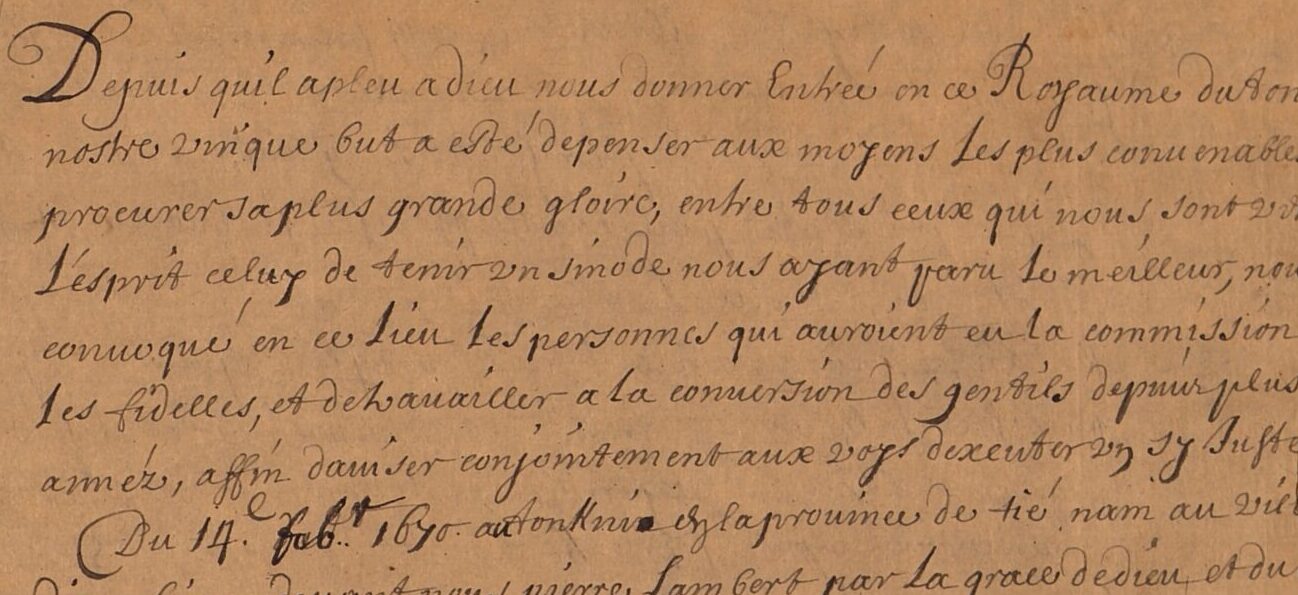 Depuis quil apleu adieu nous donner Entreé en ce Royaume duton
nostre vnique but a esté depenser aux moyens les plus conuenables
procurer saplus grande gloire, entre tous ceux qui nous sont
L'esprit celuy de tenir vn sinode nous ayant paru le meilleur, nou
conuoqué en ce lieu les personnes qui auroient eu la commission
les fidelles, et detrauailler a la conuersion des gentils depuis plus
annéz, affin dauiser conjointement aux voys dexecuter vn sy Juste
Du 14.e feb.r 1670. au tonKin en laprouince de tié nam au vil
deuant nous pierre Lambert par la grace dedieu et du